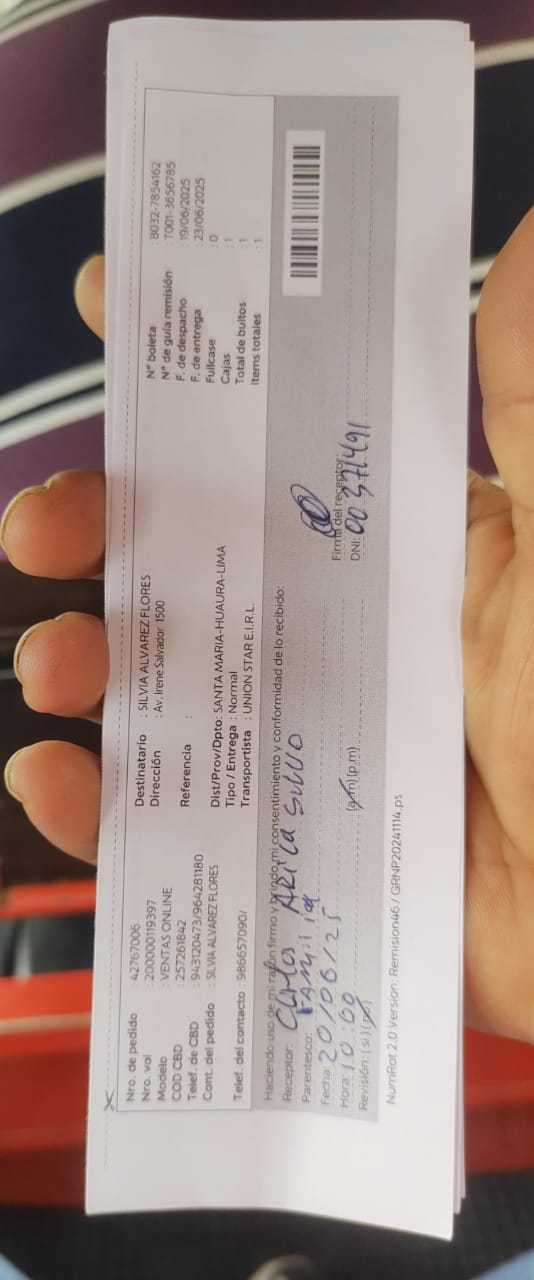 Nro. de pedido : 42767006
Nro. vol : 200000119397
Modelo : VENTAS ONLINE
COD CBD : 257261842
Telef. de CBD : 943120473/964281180
Cont. del pedido : SILVIA ALVAREZ FLORES
Telef. del contacto : 986657090/
Destinatario : SILVIA ALVAREZ FLORES
Dirección : Av. Irene Salvador 1500
Referencia :
Dist/Prov/Dpto: SANTA MARIA-HUAURA-LIMA
Tipo / Entrega : Normal
Transportista : UNION STAR E.I.R.L.
N° boleta : B032-7854162
N° de guía remisión : T001-3656785
F. de despacho : 19/06/2025
F. de entrega : 23/06/2025
Fullcase : 0
Cajas : 1
Total de bultos : 1
Items totales : 1
Haciendo uso de mi razón firmo y brindo mi consentimiento y conformidad de lo recibido:
Receptor: Carlos ARICA SILVA
Parentesco: FAMILIA
Fecha: 20/06/25
Hora: 10:00 (a.m)(p.m)
Revisión: (si)(no)
Firma del receptor:
DNI: 00371491
NumRot 2.0 Version: Remision46 / GRNP20241114.ps